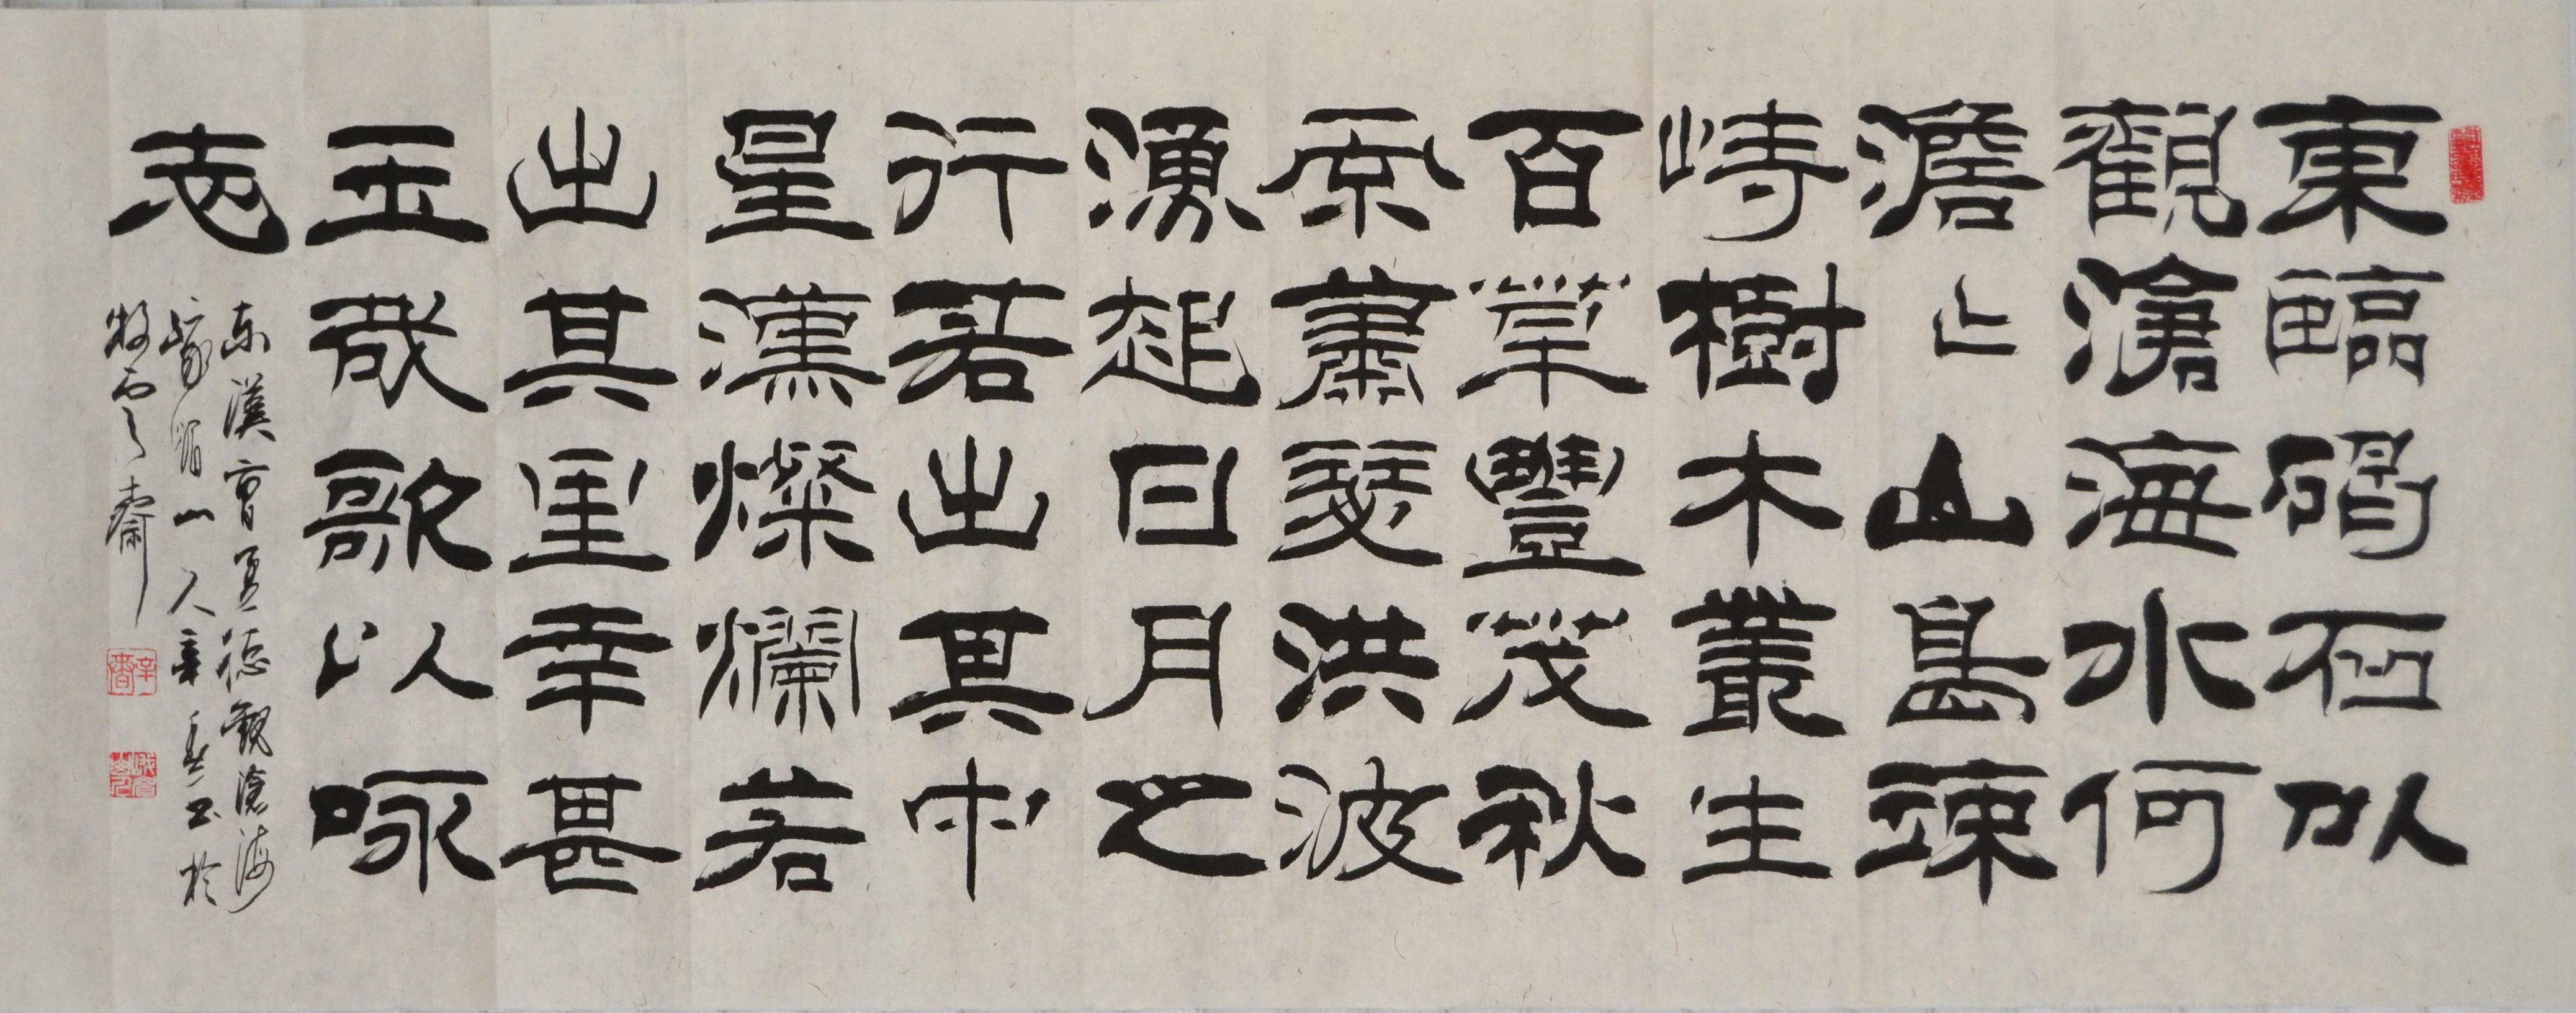 東臨碣石以
觀滄海水何
澹〻山島竦
峙樹木叢生
百草豐茂秋
風蕭瑟洪波
湧起日月之
行若出其中
星漢燦爛若
出其里幸甚
至哉歌以咏
志
东漢曹孟德觀滄海
眉山人辛书於
牧雲齋